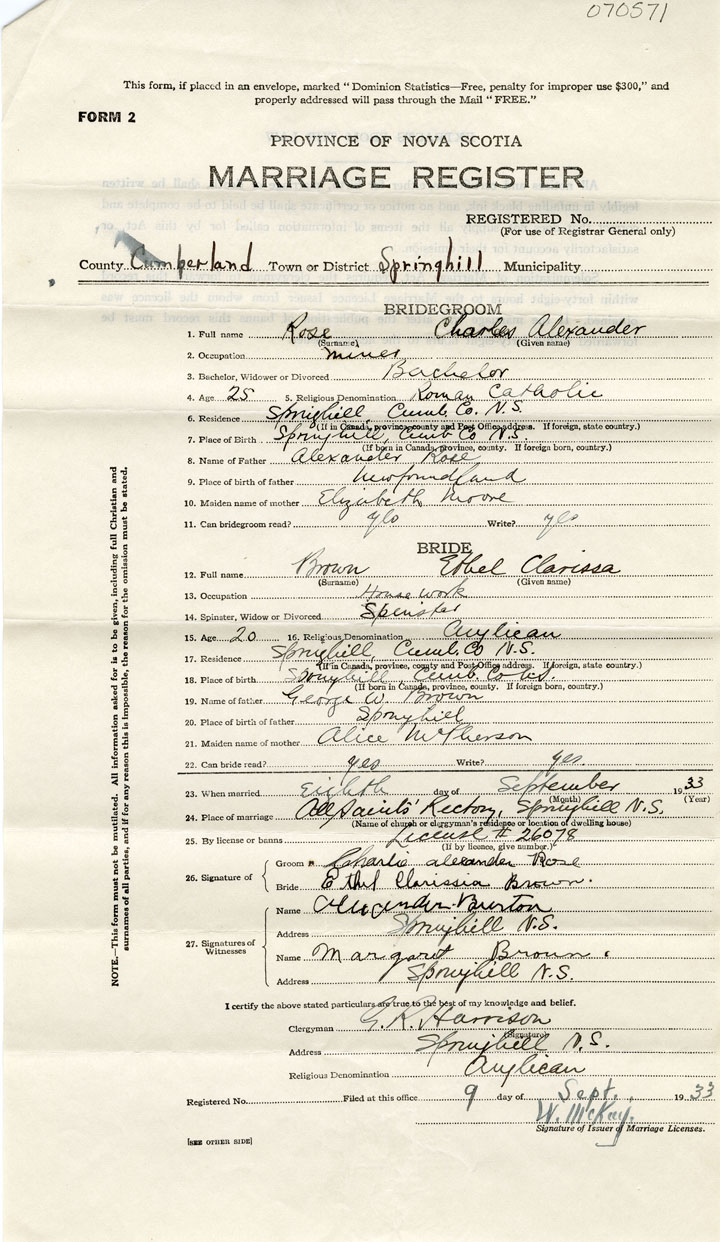 070571
This form, if placed in an envelope, marked "Dominion Statistics—Free, penalty for improper use $300," and
properly addressed will pass through the Mail "FREE."
FORM 2
PROVINCE OF NOVA SCOTIA
MARRIAGE REGISTER
REGISTERED No.
(For use of Registrar General only)
County Cumberland Town or District Springhill Municipality
BRIDEGROOM
1. Full name Rose Charles Alexander
(Surname) (Given name)
2. Occupation miner
3. Bachelor, Widower or Divorced Bachelor
4. Age 25 5. Religious Denomination Roman Catholic
6. Residence Springhill, Cumb. Co. N.S.
(If in Canada, province, county and Post Office address. If foreign, state country.)
7. Place of Birth Springhill, Cumb Co N.S.
(If born in Canada, province, county. If foreign born, country.)
8. Name of Father Alexander Rose
9. Place of birth of father Newfoundland
10. Maiden name of mother Elizabeth Moore
11. Can bridegroom read? yes Write? yes
BRIDE
12. Full name Brown Ethel Clarissa
(Surname) (Given name)
13. Occupation House work
14. Spinster, Widow or Divorced Spinster
15. Age 20 16. Religious Denomination Anglican
17. Residence Springhill, Cumb. Co N.S.
(If in Canada, province, county and Post Office address. If foreign, state country.)
18. Place of birth Springhill Cumb. Co N.S.
(If born in Canada, province, county. If foreign born, country.)
19. Name of father George W. Brown
20. Place of birth of father Springhill
21. Maiden name of mother Alice McPherson
22. Can bride read? yes Write? yes.
23. When married Eighth day of September 1933
(Month) (Year)
24. Place of marriage All Saints' Rectory, Springhill N.S.
(Name of church or clergyman's residence or location of dwelling house)
25. By license or banns License # 26078
(If by licence, give number.)
26. Signature of Groom Charlie alexander Rose
Bride Ethel Clarissia Brown.
27. Signatures of Witnesses Name Alexander Burton
Address Springhill N.S.
Name Margaret Brown.
Address Springhill N.S.
I certify the above stated particulars are true to the best of my knowledge and belief.
Clergyman G. R. Harrison
(Signature)
Address Springhill N.S.
Religious Denomination Anglican
Registered No. Filed at this office 9 day of Sept. 1933
W. McKay.
Signature of Issuer of Marriage Licenses.
[SEE OTHER SIDE]
NOTE.—This form must not be mutilated. All information asked for is to be given, including full Christian and
surnames of all parties, and if for any reason this is impossible, the reason for the omission must be stated.